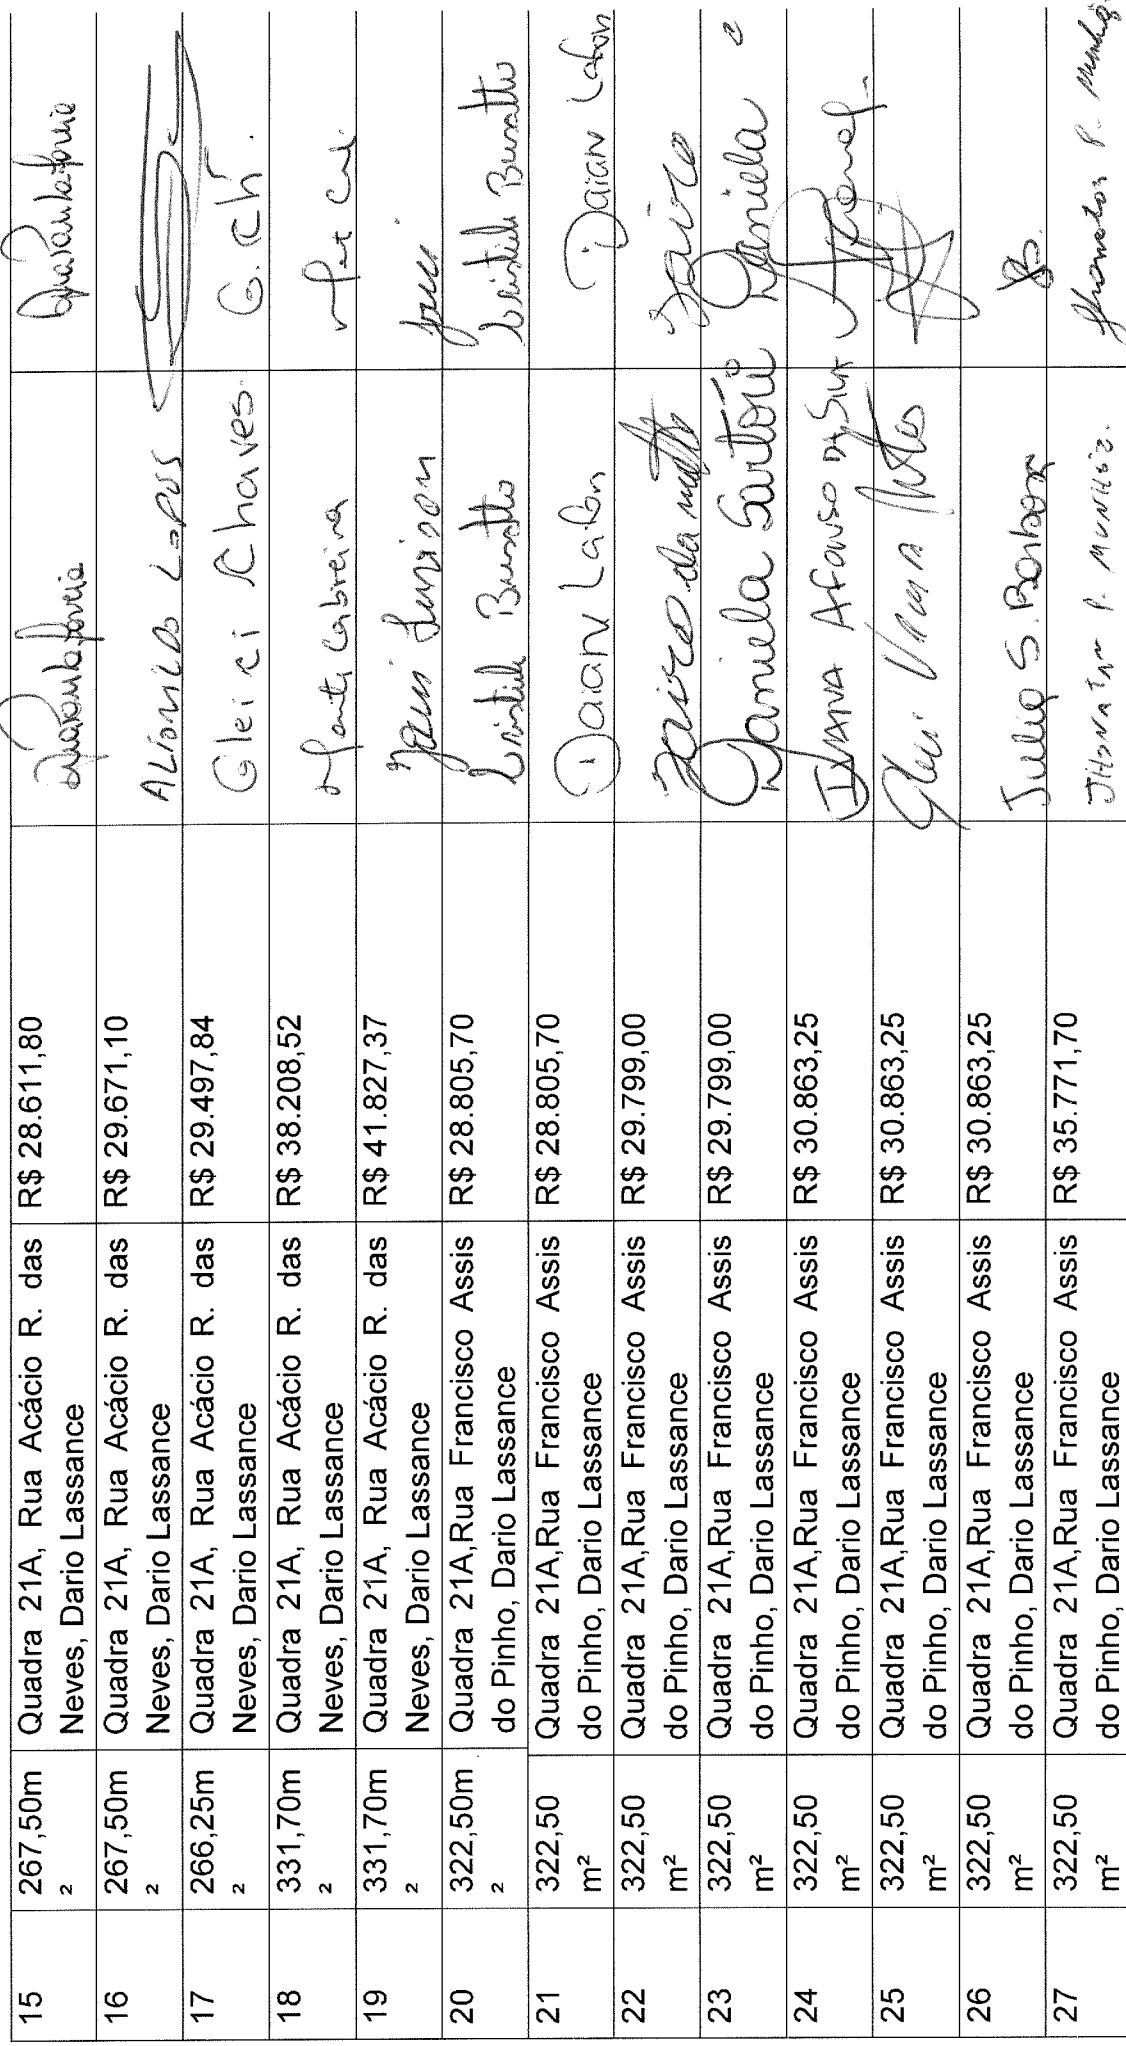 15 267,50m² Quadra 21A, Rua Acácio R. das Neves, Dario Lassance R$ 28.611,80
16 267,50m² Quadra 21A, Rua Acácio R. das Neves, Dario Lassance R$ 29.671,10 Lopes
17 266,25m² Quadra 21A, Rua Acácio R. das Neves, Dario Lassance R$ 29.497,84 Gleici Chaves G. Ch.
18 331,70m² Quadra 21A, Rua Acácio R. das Neves, Dario Lassance R$ 38.208,52
19 331,70m² Quadra 21A, Rua Acácio R. das Neves, Dario Lassance R$ 41.827,37
20 322,50m² Quadra 21A,Rua Francisco Assis do Pinho, Dario Lassance R$ 28.805,70
21 322,50 m² Quadra 21A,Rua Francisco Assis do Pinho, Dario Lassance R$ 28.805,70 Daian Daian
22 322,50 m² Quadra 21A,Rua Francisco Assis do Pinho, Dario Lassance R$ 29.799,00 Jairo da Jairo
23 322,50 m² Quadra 21A,Rua Francisco Assis do Pinho, Dario Lassance R$ 29.799,00 Daniela Sartori Daniela
24 322,50 m² Quadra 21A,Rua Francisco Assis do Pinho, Dario Lassance R$ 30.863,25 Ivana Afonso da Silva
25 322,50 m² Quadra 21A,Rua Francisco Assis do Pinho, Dario Lassance R$ 30.863,25
26 322,50 m² Quadra 21A,Rua Francisco Assis do Pinho, Dario Lassance R$ 30.863,25 S. Barbosa
27 322,50 m² Quadra 21A,Rua Francisco Assis do Pinho, Dario Lassance R$ 35.771,70